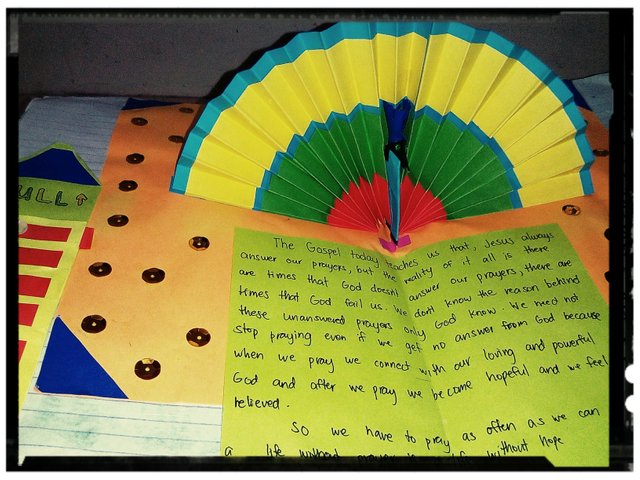 ULL ↑
The Gospel today teaches us that, Jesus always
answer our prayers, but the reality of it all is there
are times that God doesn't answer our prayers, there are
times that God fail us. We don't know the reason behind
these unanswered prayers only God know. We need not
stop praying even if we get no answer from God because
when we pray we connect with our loving and powerful
God and after we pray we become hopeful and we feel
relieved.
SO we have to pray as often as we can
a life without prayer is life without hope